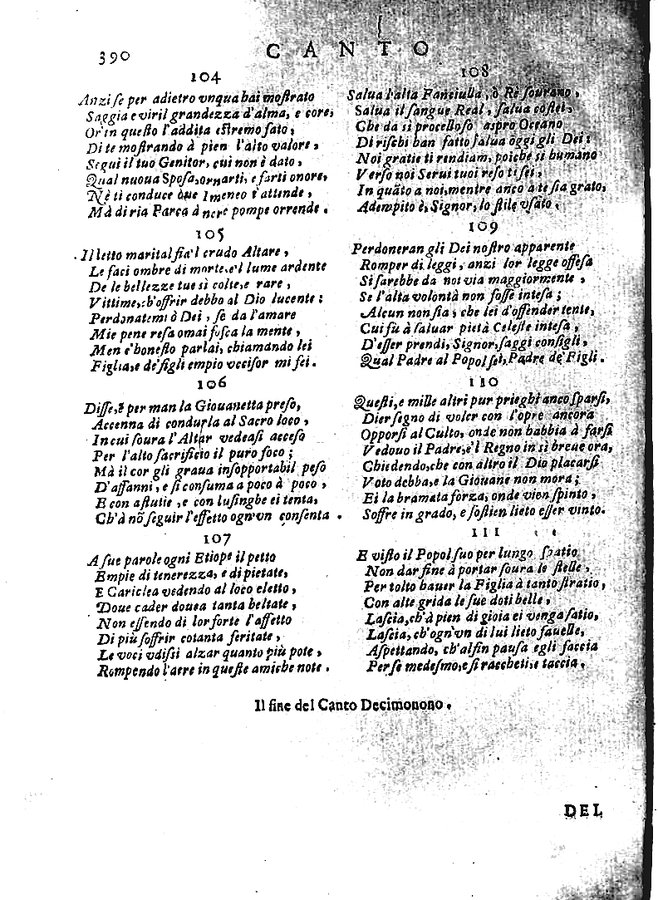 390
CANTO
104
Anzi se per adietro vnqua hai moſtrato
Saggia e viril grandezza d'alma, e core,
Or'in queſto l'addita eſtremo fato,
Di te moſtrando à pien l'alto valore,
Segui il tuo Genitor, cui non è dato,
Qual nuoua Spoſa, ornarti, e farti onore,
Nè ti conduce oue Imeneo t'attende,
Mà di ria Parca à nere pompe orrende.
105
Il letto marital fia'l crudo Altare,
Le faci ombre di morte, e'l lume ardente
De le bellezze tue sì colte, e rare,
Vittime, ch'offrir debbo al Dio lucente:
Perdonatemi ò Dei, ſe da l'amare
Mie pene reſa omai foſca la mente,
Men'e honeſto parlai, chiamando lei
Figlia, e de figli empio vccisor mi fei.
106
Diſſe, e per man la Giouanetta preſo,
Accenna di condurla al Sacro loco,
In cui ſoura l'Altar vedeaſi acceſo
Per l'alto ſacrificio il puro foco;
Mà il cor gli graua inſopportabil peſo
D'affanni, e ſi conſuma a poco à poco,
E con aſtutie, e con luſinghe ei tenta,
Ch'à nõ ſeguir l'effetto ogn'vn conſenta.
107
A ſue parole ogni Etiope il petto
Empie di tenerezza, e di pietate,
E Cariclea vedendo al loco eletto,
Doue cader douea tanta beltate,
Non eſſendo di lor forte l'affetto
Di più ſoffrir cotanta feritate,
Le voci vdiſſi alzar quanto più pote,
Rompendo l'aere in queſte amiche note.
108
Salua l'alta Fanciulla, ò Rè ſourano,
Salua il ſangue Real, ſalua coſtei,
Che da sì procelloſo aſpro Oceano
Di riſchi han fatto ſalua oggi gli Dei:
Noi gratie ti rendiam, poiche sì humano
Verſo noi Serui tuoi reſo ti ſei,
In quãto a noi, mentre anco à te ſia grato,
Adempito è, Signor, lo ſtile vſato.
109
Perdoneran gli Dei noſtro apparente
Romper di leggi, anzi lor legge offeſa
Si ſarebbe da noi via maggiormente,
Se l'alta volontà non foſſe inteſa;
Alcun non ſia, che lei d'offender tente,
Cui fù à ſaluar pietà Celeſte inteſa,
D'eſſer prendi, Signor, ſaggi conſigli,
Qual Padre al Popol ſei, Padre de' Figli.
110
Queſti, e mille altri pur prieghi anco ſparſi,
Dier ſegno di voler con l'opre ancora
Opporſi al Culto, onde non babbia à farſi
Vedouo il Padre, e'l Regno in sì breue ora,
Chiedendo, che con altro il Dio placarſi
Voto debba, e la Giouane non mora;
Ei la bramata forza, onde vien ſpinto,
Soffre in grado, e ſoſtien lieto eſſer vinto.
111
E viſto il Popol ſuo per lungo ſpatio
Non dar fine à portar ſoura le ſtelle,
Per tolto hauer la Figlia à tanto ſtratio,
Con alte grida le ſue doti belle,
Laſcia, ch'à pien di gioia ei venga ſatio,
Laſcia, ch'ogn'vn di lui lieto fauelle,
Aſpettando, ch'alfin pauſa egli faccia
Per ſe medeſmo, e ſi racchetie, e taccia.
Il fine del Canto Decimonono.
DEL